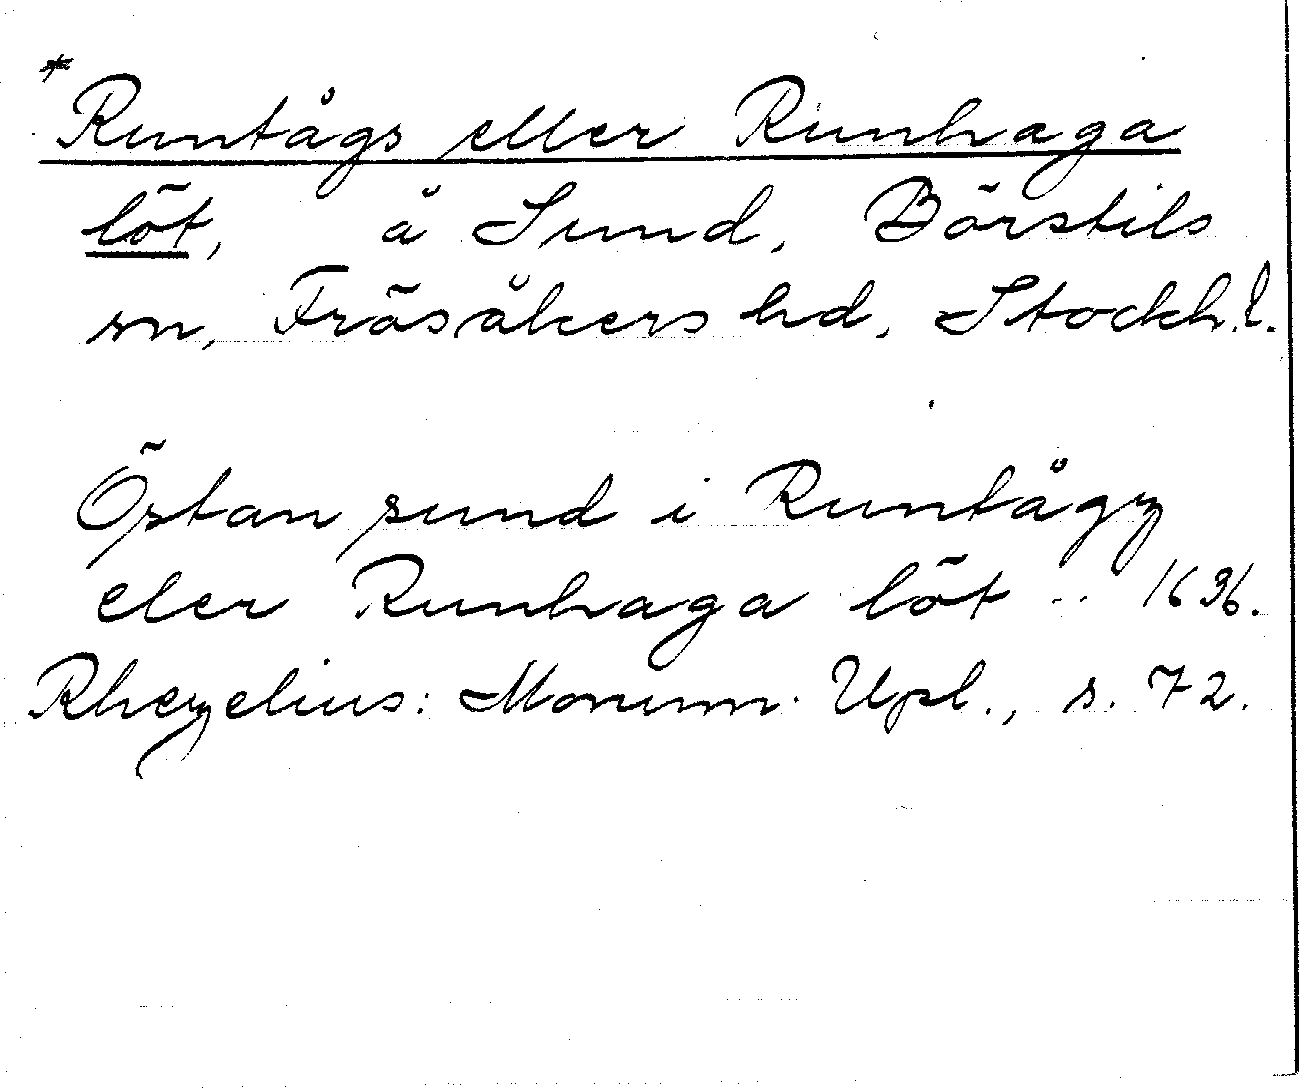 *Runtågs eller Runhaga
löt, å Sund, Börstils
sn, Frösåkers hd, Stockh.l.
Östan sund i Runtågz
eler Runhaga löt .. 1636.
Rhezelius: Monum. Upl., s. 72.